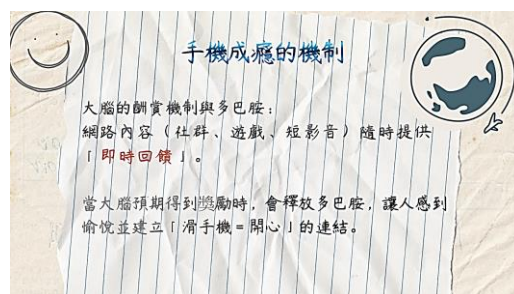 手機成癮的機制
大腦的酬賞機制與多巴胺：
網路內容（社群、遊戲、短影音）隨時提供
「即時回饋」。
當大腦預期得到獎勵時，會釋放多巴胺，讓人感到
愉悅並建立「滑手機＝開心」的連結。